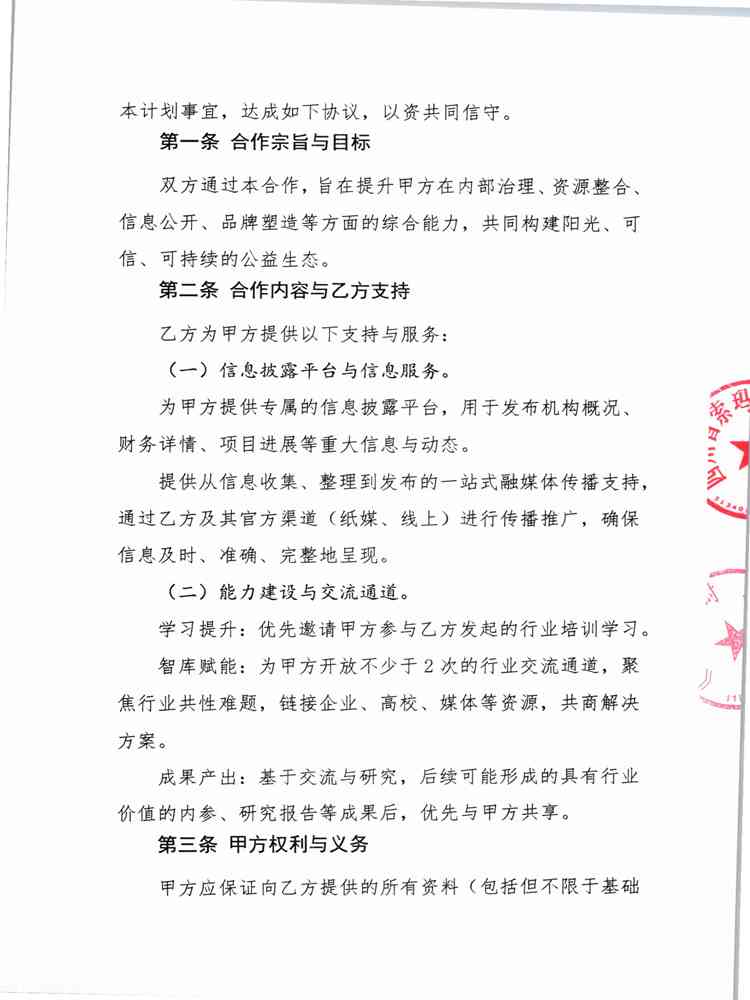 本计划事宜，达成如下协议，以资共同信守。
第一条 合作宗旨与目标
双方通过本合作，旨在提升甲方在内部治理、资源整合、
信息公开、品牌塑造等方面的综合能力，共同构建阳光、可
信、可持续的公益生态。
第二条 合作内容与乙方支持
乙方为甲方提供以下支持与服务：
（一）信息披露平台与信息服务。
为甲方提供专属的信息披露平台，用于发布机构概况、
财务详情、项目进展等重大信息与动态。
提供从信息收集、整理到发布的一站式融媒体传播支持，
通过乙方及其官方渠道（纸媒、线上）进行传播推广，确保
信息及时、准确、完整地呈现。
（二）能力建设与交流通道。
学习提升：优先邀请甲方参与乙方发起的行业培训学习。
智库赋能：为甲方开放不少于2次的行业交流通道，聚
焦行业共性难题，链接企业、高校、媒体等资源，共商解决
方案。
成果产出：基于交流与研究，后续可能形成的具有行业
价值的内参、研究报告等成果后，优先与甲方共享。
第三条 甲方权利与义务
甲方应保证向乙方提供的所有资料（包括但不限于基础
四川省索玛